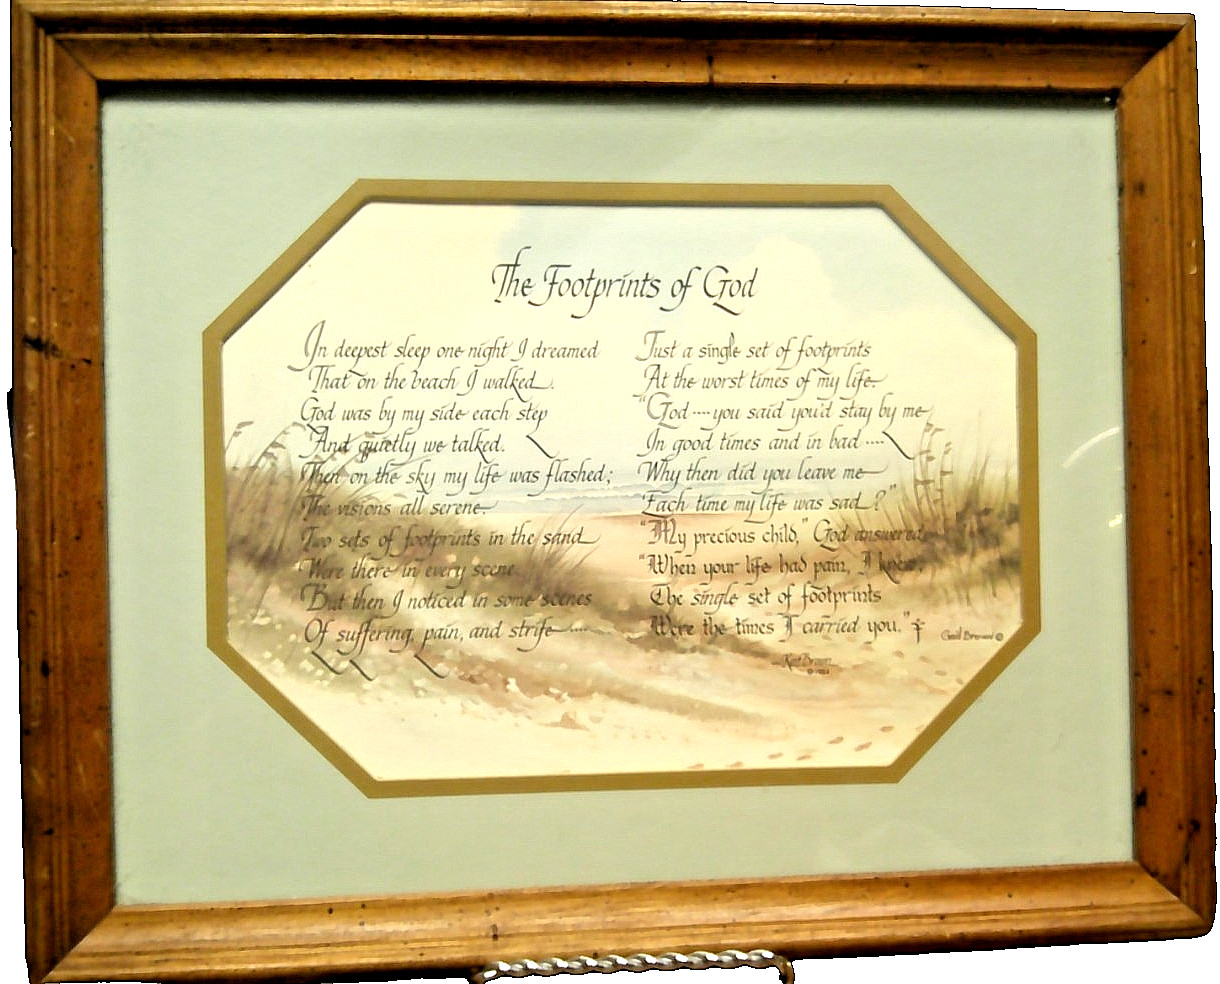 The Footprints of God
In deepest sleep one night I dreamed
That on the beach I walked.
God was by my side each step
And quietly we talked.
Then on the sky my life was flashed;
The visions all serene.
Two sets of footprints in the sand
Were there in every scene.
But then I noticed in some scenes
Of suffering, pain, and strife ....
Just a single set of footprints
At the worst times of my life.
"God ---- you said you'd stay by me
In good times and in bad ....
Why then did you leave me
Each time my life was sad?"
"My precious child," God answered,
"When your life had pain, I knew,
The single set of footprints
Were the times I carried you." †
Gail Brown ©
Brown